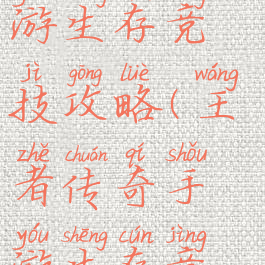 游生存竞
jì gōng lüè wáng
技攻略(王
zhě chuán qí shǒu
者传奇手
yóu shēng cún jìng
游生存竞